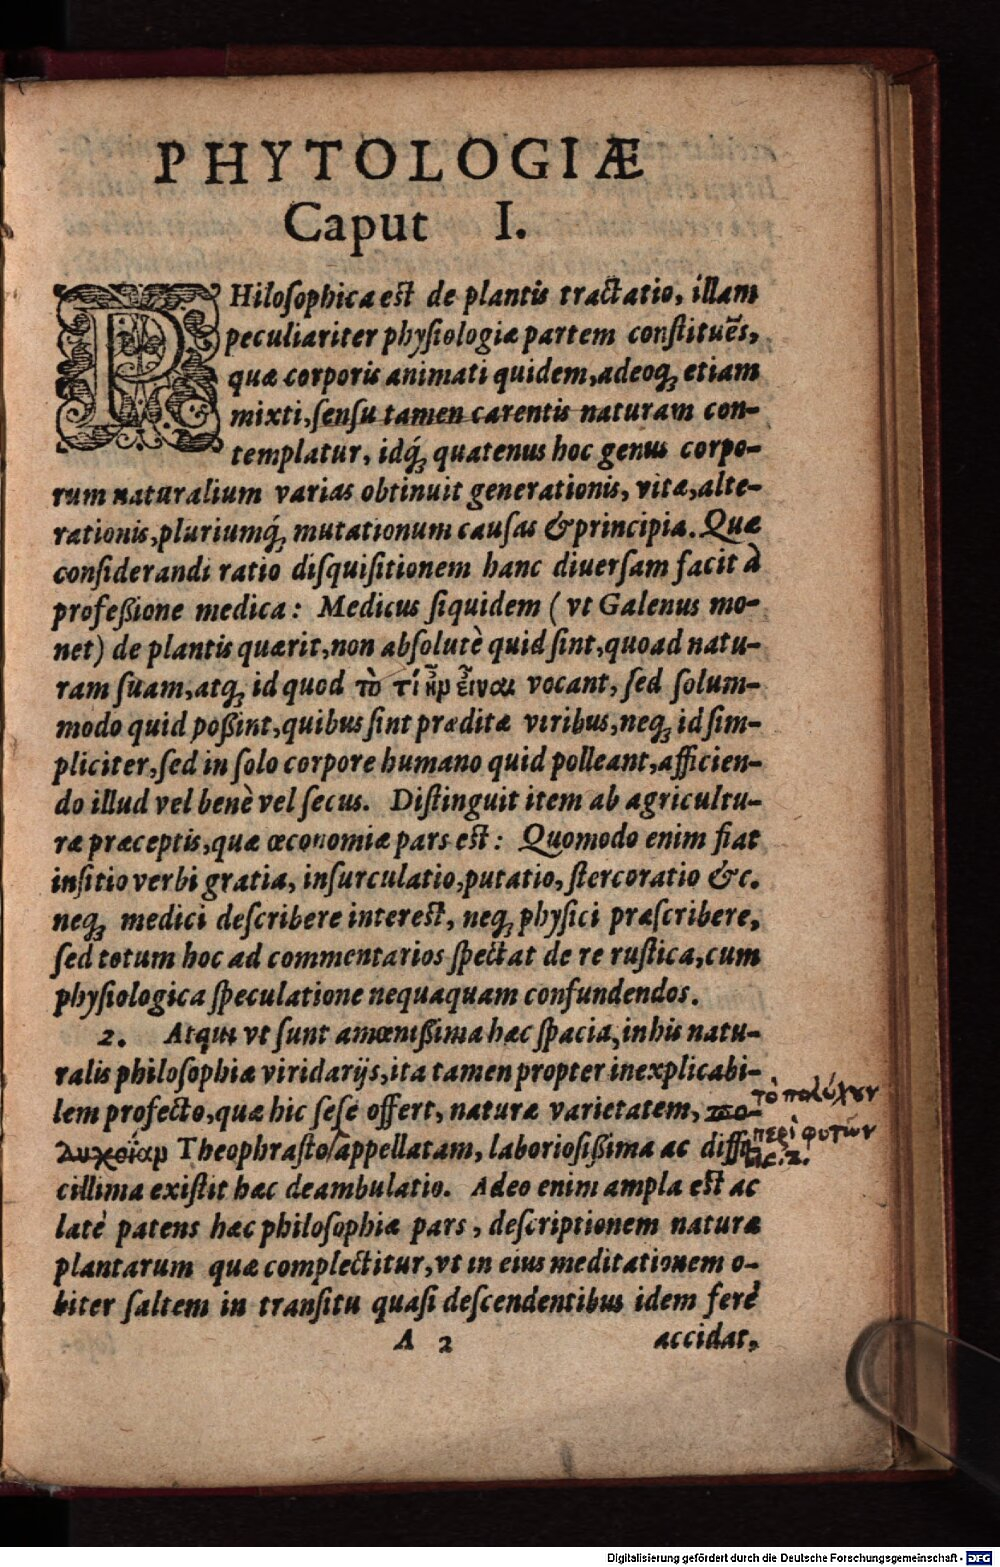 PHYTOLOGIÆ
Caput I.
PHiloſophica est de plantis tractatio, illam
peculiariter phyſiologiæ partem conſtituēs,
quæ corporis animati quidem, adeoq; etiam
mixti, ſenſu tamen carentis naturam con-
templatur, idq́; quatenus hoc genus corpo-
rum naturalium varias obtinuit generationis, vitæ, alte-
rationis, pluriumq́; mutationum cauſas & principia. Quæ
conſiderandi ratio diſquiſitionem hanc diuerſam facit à
profeßione medica: Medicus ſiquidem (vt Galenus mo-
net) de plantis quærit, non abſolutè quid ſint, quoad natu-
ram ſuam, atq; id quod τὸ τί ἦν εἶναι vocant, ſed ſolum-
modo quid poßint, quibus ſint præditæ viribus, neq; id ſim-
pliciter, ſed in ſolo corpore humano quid polleant, afficien-
do illud vel benè vel ſecus. Diſtinguit item ab agricultu-
ræ præceptis, quæ œconomiæ pars est: Quomodo enim fiat
inſitio verbi gratia, inſurculatio, putatio, ſtercoratio &c.
neq; medici deſcribere interest, neq; phyſici præſcribere,
ſed totum hoc ad commentarios ſpectat de re ruſtica, cum
phyſiologica ſpeculatione nequaquam confundendos.
2. Atqui vt ſunt amœnißima hæc ſpacia, in his natu-
ralis philoſophiæ viridarijs, ita tamen propter inexplicabi-
lem profecto, quæ hic ſeſe offert, naturæ varietatem, πο-
τὸ πολύχουν
λυχοΐαν Theophraſto appellatam, laborioſißima ac diffi-
περὶ φυτῶν
cillima exiſtit hæc deambulatio. Adeo enim ampla est ac
latè patens hæc philoſophiæ pars, deſcriptionem naturæ
plantarum quæ complectitur, vt in eius meditationem o-
biter ſaltem in tranſitu quaſi deſcendentibus idem ferè
A 2 accidat,
Digitalisierung gefördert durch die Deutsche Forschungsgemeinschaft - DFG